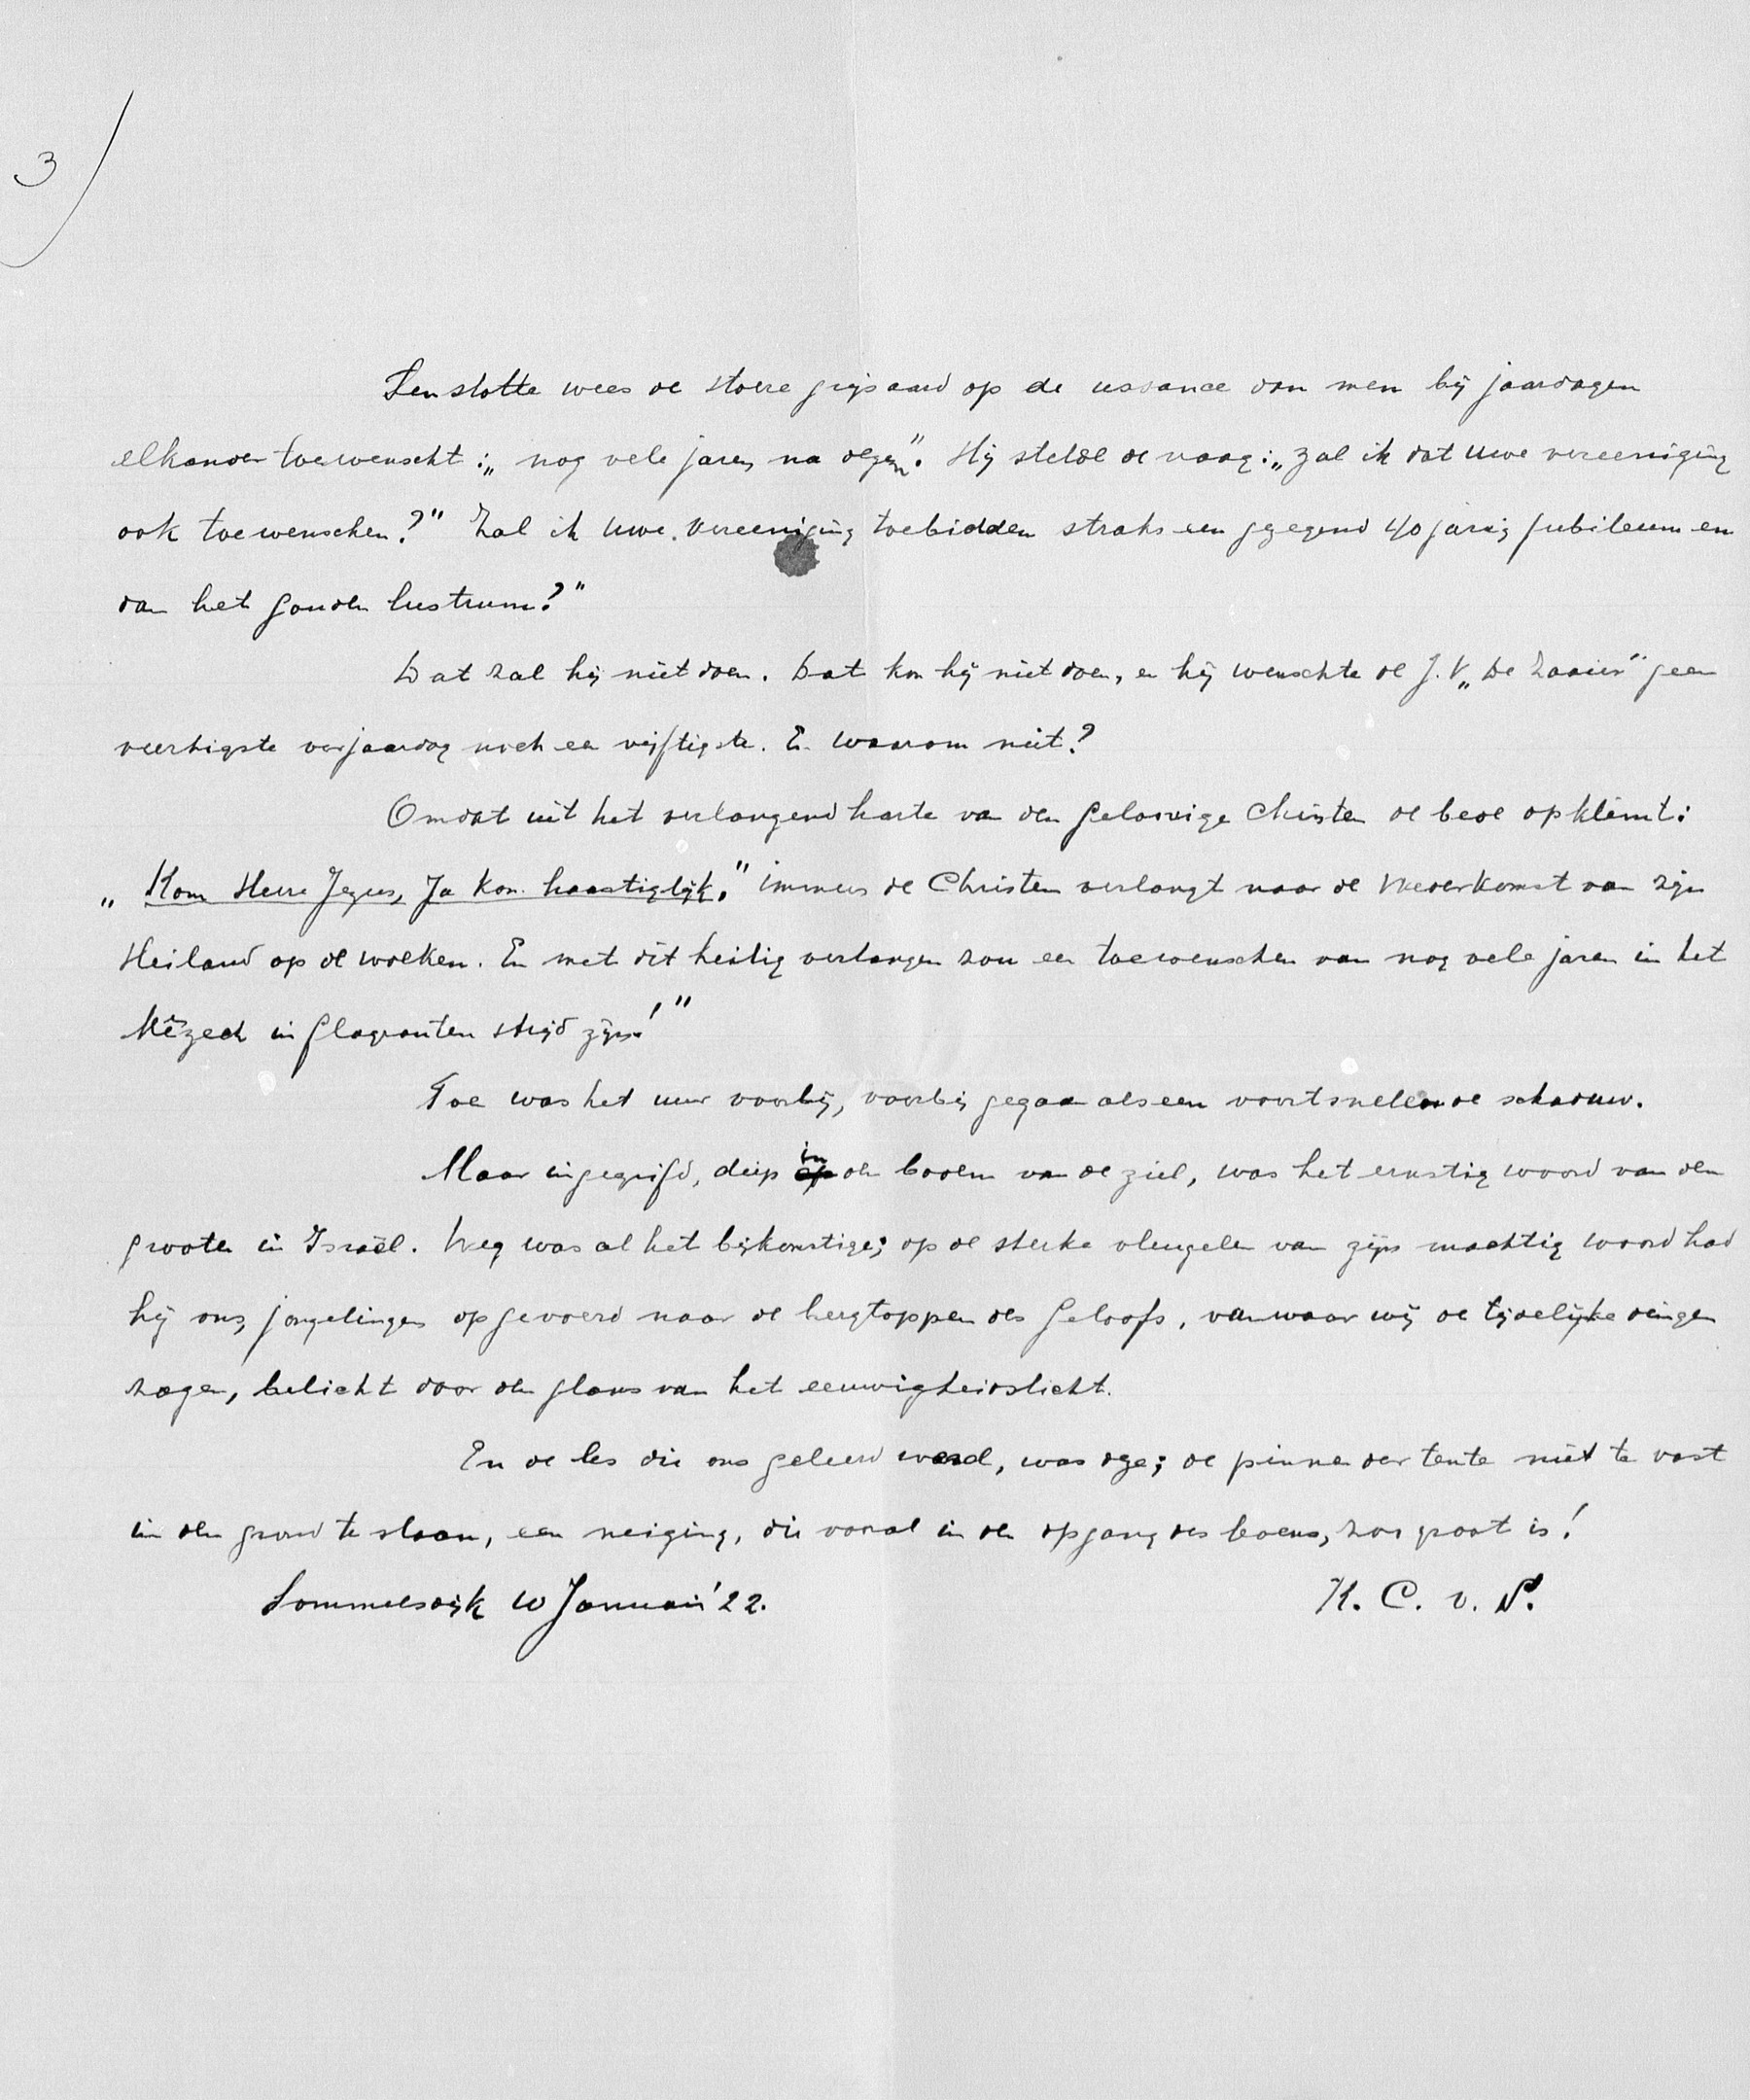 3
Ten slotte wees de stoere grijsaard op de ussance dan men bij jaardagen
elkander toewenscht: „nog vele jaren na dezen". Hij stelde de vraag: „zal ik dat uwe vereeniging
ook toewenschen?" Zal ik uwe vereeniging toebidden straks een gezegend 40 jarig jubileum en
dan het gouden lustrum?"
Dat zal hij niet doen. Dat kon hij niet doen, en hij wenschte de J.V „De Zaaier" geen
veertigste verjaardag noch een vijftigste. En waarom niet?
Omdat uit het verlangend harte van den geloovige Christen de bede opklimt:
„Kom Heere Jezus, Ja kom haastiglijk." immers de Christen verlangt naar de wederkomst van zijn
Heiland op de wolken. En met dit heilig verlangen zou een toewenschen van nog vele jaren in het
Mêzech in flagranten strijd zijn!"
Toe was het uur voorbij, voorbij gegaan als een voortsnellende schaduw.
Maar ingegrifd, diep in den bodem van de ziel, was het ernstig woord van den
grooten in Israël. Weg was al het bijkomstige; op de sterke vleugelen van zijn machtig woord had
hij ons, jongelingen opgevoerd naar de bergtoppen des geloofs, vanwaar wij de tijdelijke dingen
zagen, belicht door den glans van het eeuwigheidslicht.
En de les die ons geleerd werd, was deze; de pinnen der tente niet te vast
in den grond te slaan, een neiging, die vooral in den opgang des levens, zoo groot is!
Sommelsdijk 10 Januari '22. K. C. v. S.